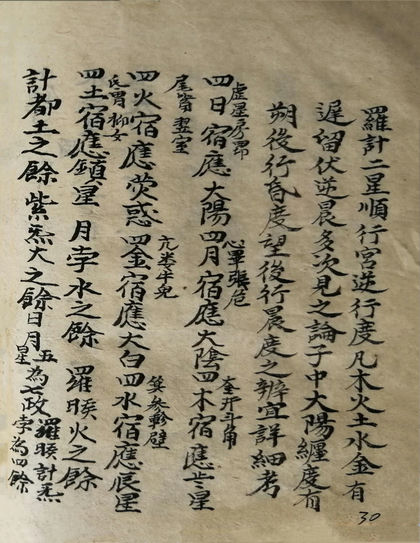 羅計二星順行宮逆行度凡木火土水金有
遲留伏逆晨多次見之論子中大陽纏度有
朔後行昏度望後行晨度之辨宜詳細考
虛星房昴
心畢張危
奎井斗角
四日宿應大陽四月宿應大陰四木宿應歲星
尾觜翌室
亢婁牛鬼
箕參軫壁
四火宿應熒惑四金宿應大白四水宿應辰星
氐胃柳女
四土宿應鎮星 月孛水之餘 羅睺火之餘
計都土之餘 紫炁木之餘日月五星為七政羅睺計炁孛為四餘
30